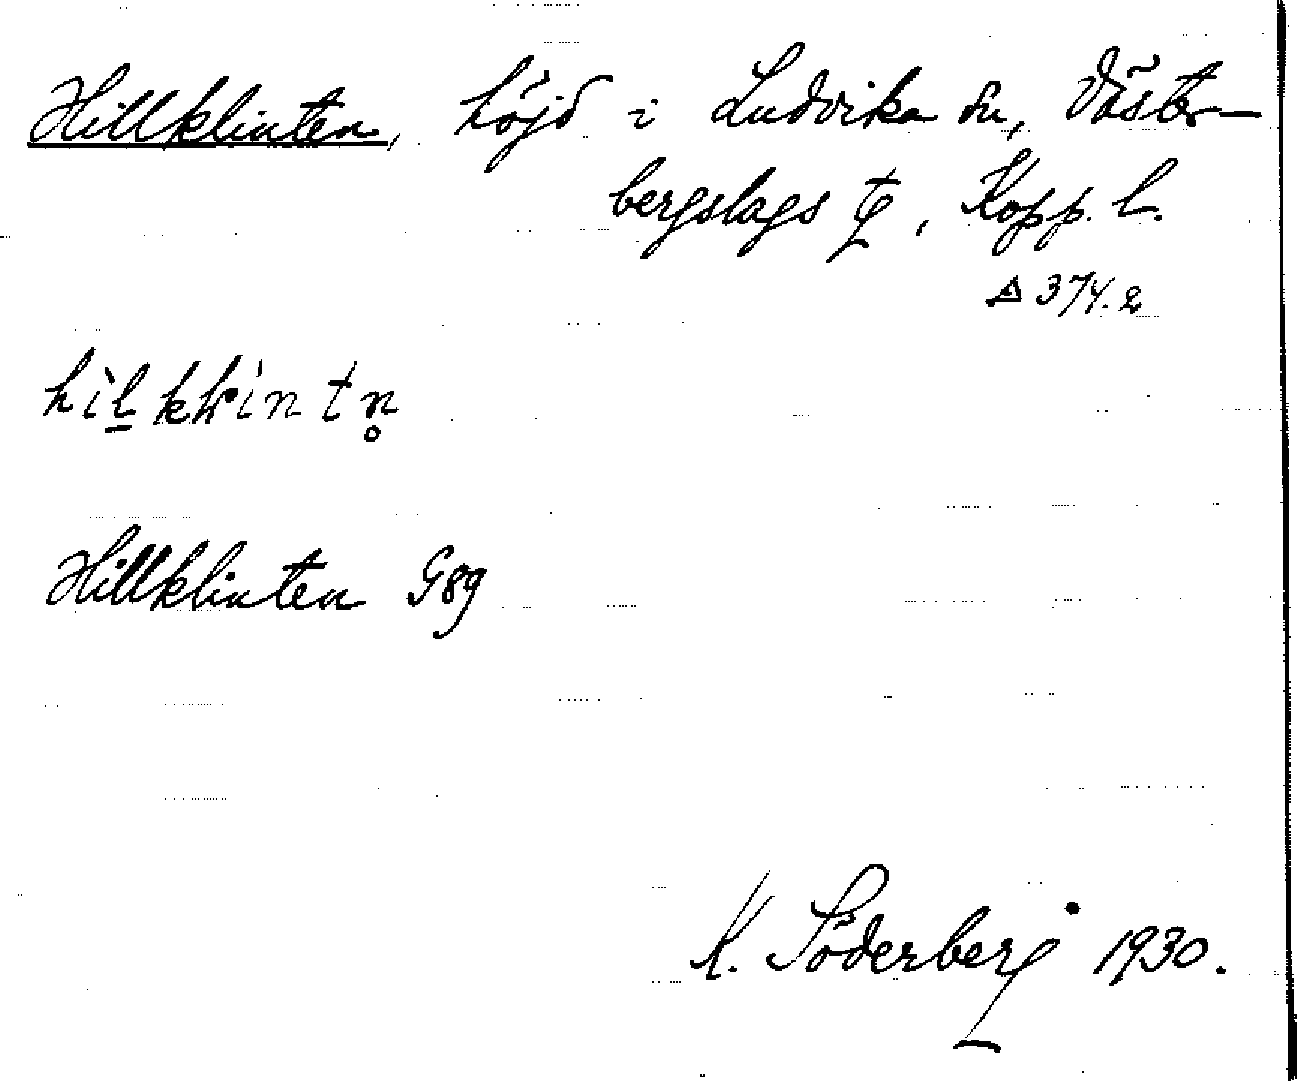 Hillklinten, höjd i Ludvika sn, Väster-
bergslags tg, Kopp. l.
△ 374.2
Hillklinten G89
K. Söderberg 1930.